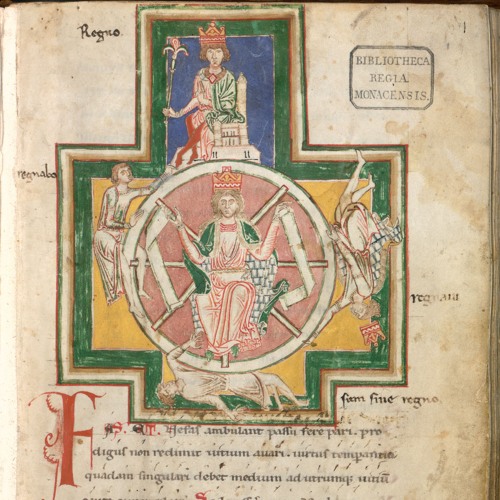 Regno.
BIBLIOTHECA
REGIA
MONACENSIS.
regnabo
regnaui
sum sine regno.
FAS. ET. Nefas ambulant passu fere pari. pro
digus non redimit uitium auari. uirtus temperantia
quadam singulari debet medium ad utrumque uitium